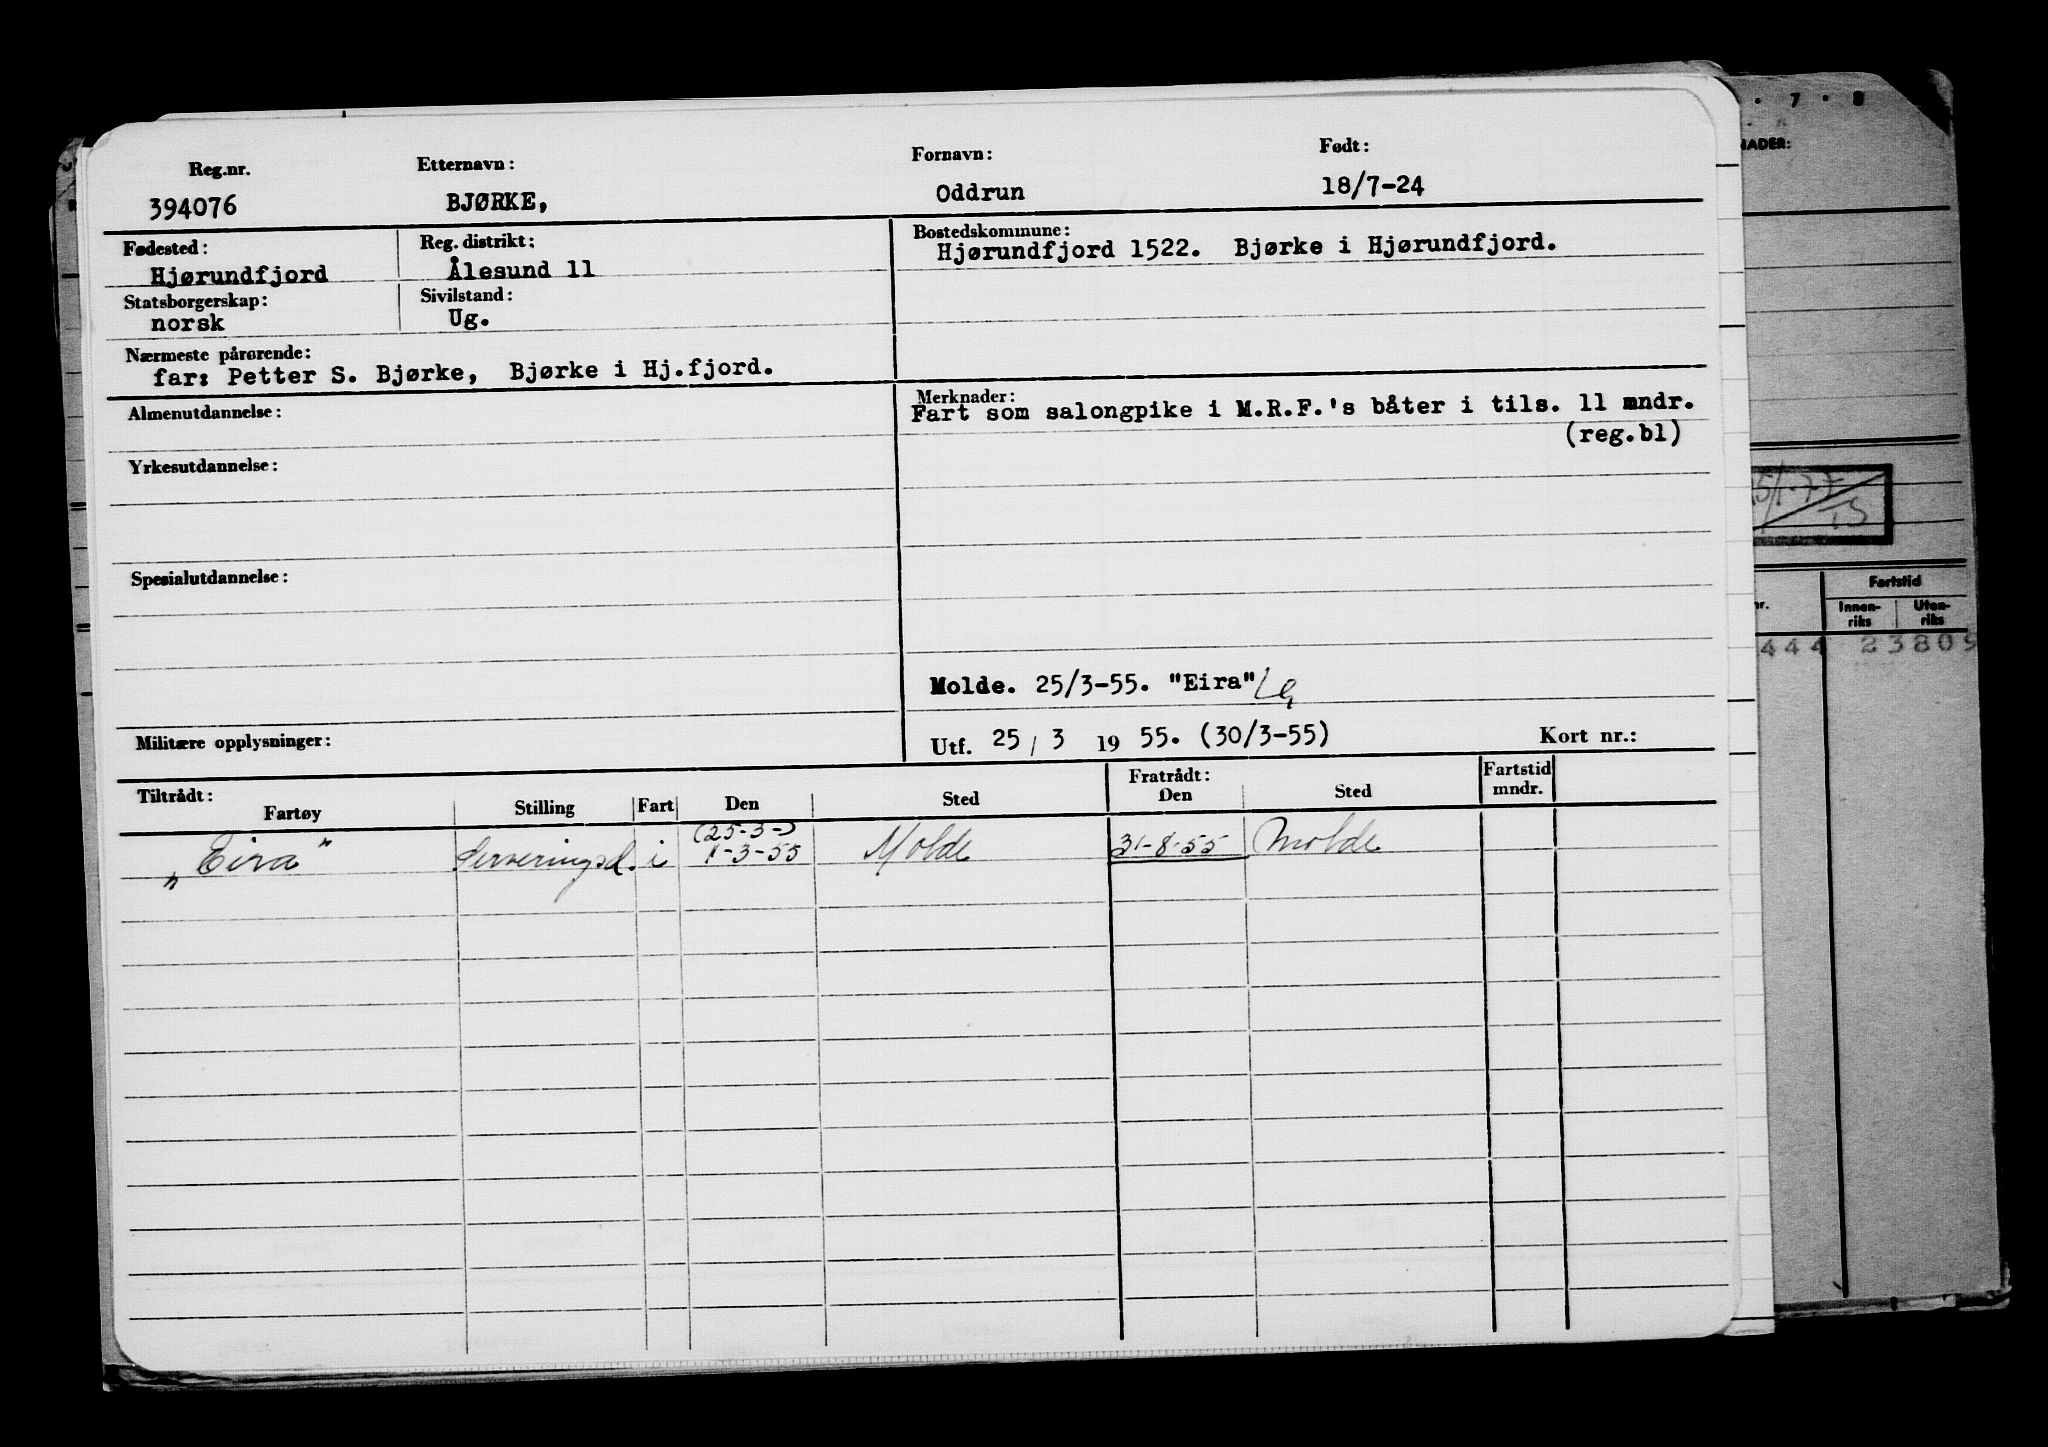 Reg.nr. Etternavn: Fornavn: Født:
394076 BJØRKE, Oddrun 18/7-24
Fødested: Reg. distrikt: Bostedskommune:
Hjørundfjord Ålesund 11 Hjørundfjord 1522. Bjørke i Hjørundfjord.
Statsborgerskap: Sivilstand:
norsk Ug.
Nærmeste pårørende:
far: Petter S. Bjørke, Bjørke i Hj.fjord.
Almenutdannelse: Merknader:
Fart som salongpike i M.R.F.'s båter i tils. 11 mndr.
(reg.bl)
Yrkesutdannelse:
Spesialutdannelse:
Molde. 25/3-55. "Eira"
Militære opplysninger: Utf. 25 / 3 19 55. (30/3-55) Kort nr.:
Tiltrådt: Fratrådt: Fartstid
Fartøy Stilling Fart Den Sted Den Sted mndr.
(25-3-)
„Eira" Serveringsd. i 1-3-55 Molde 31-8-55 Molde
7 · 8
NADER:
Fartstid
nr. Innen- Uten-
riks riks
444 23809